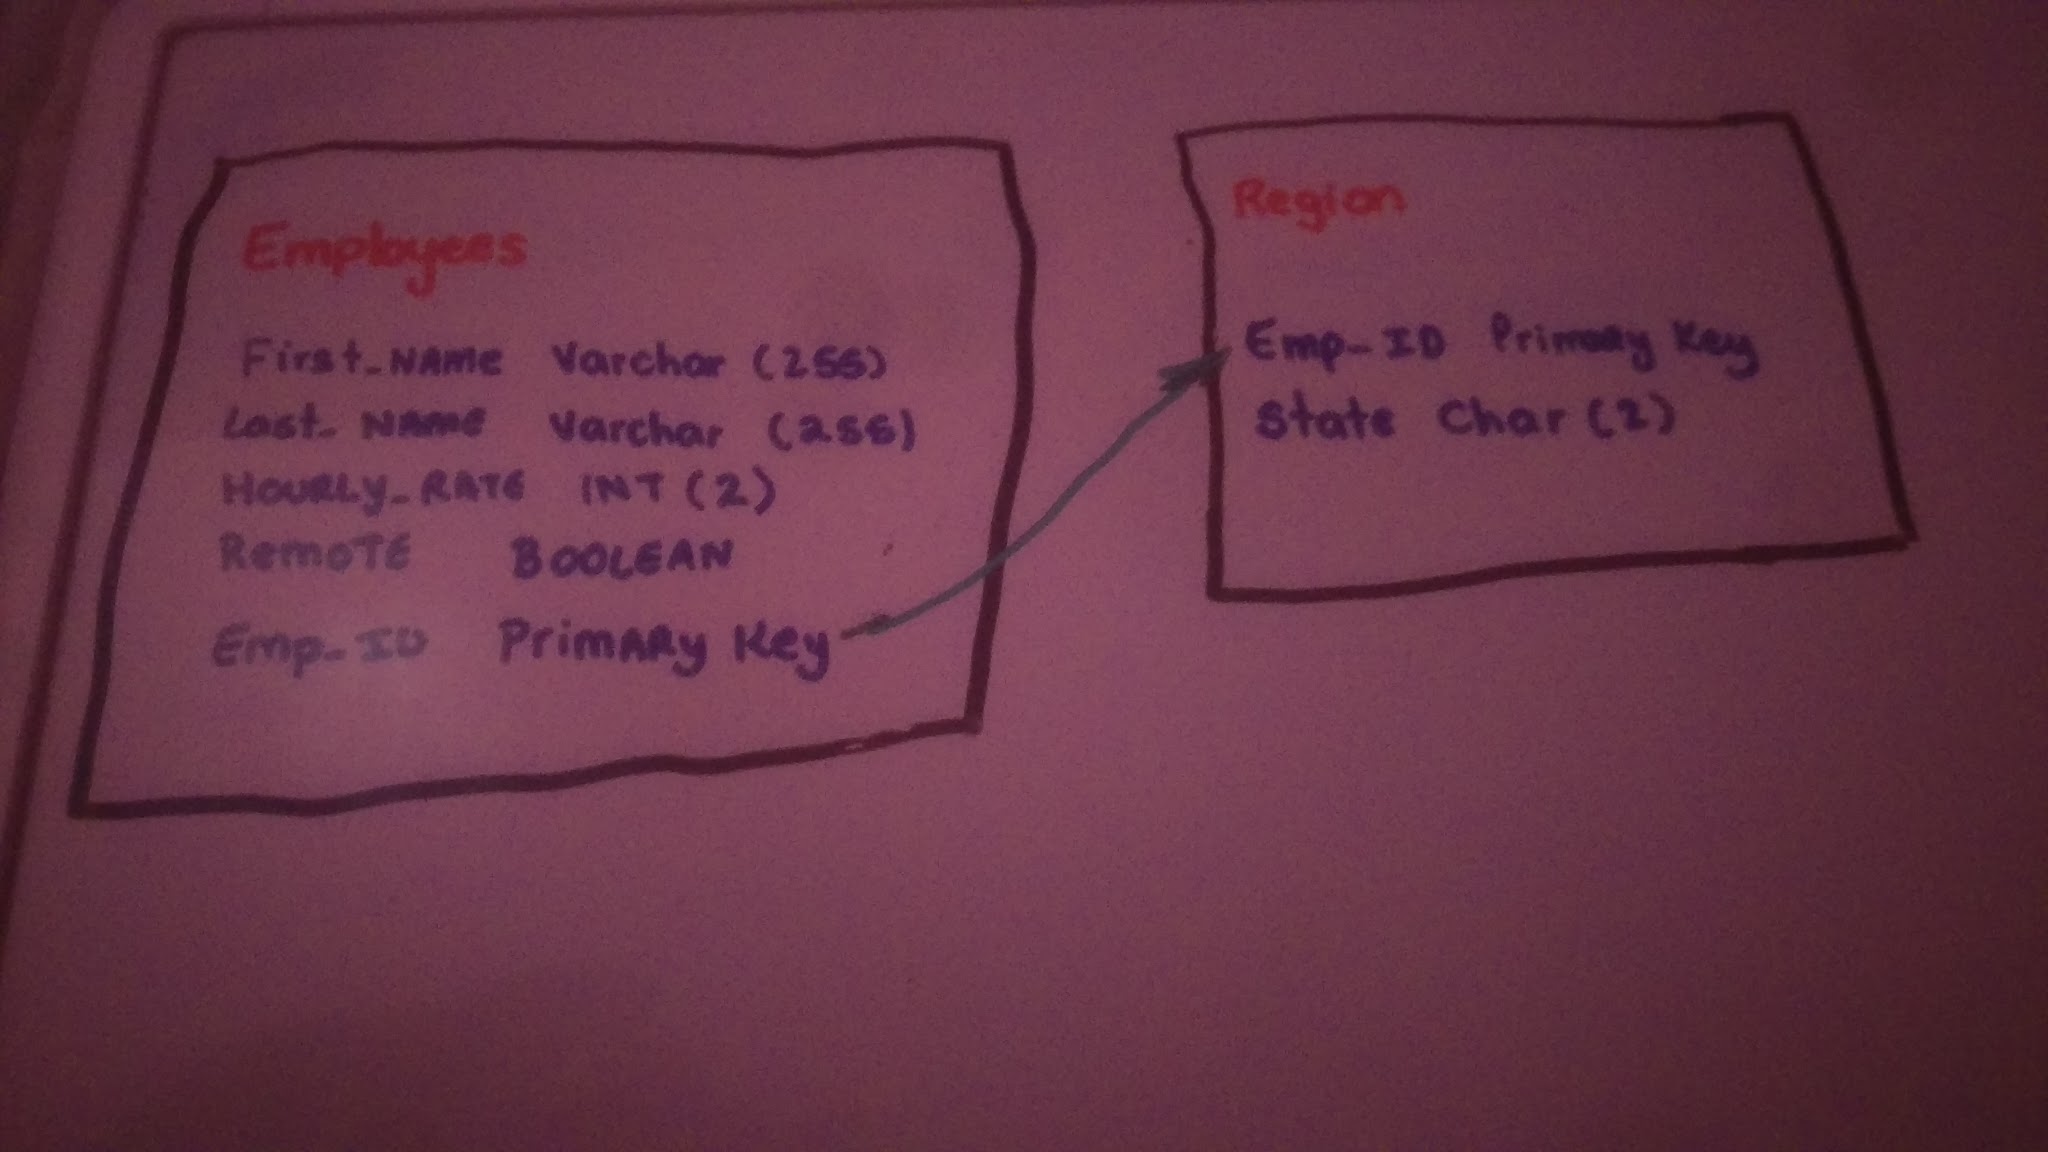 Employees
First_NAME Varchar (255)
Last_NAME Varchar (255)
HOURLY_RATE INT (2)
RemoTE BOOLEAN
Emp_ID PrimARy Key
Region
Emp_ID Primary Key
State Char (2)